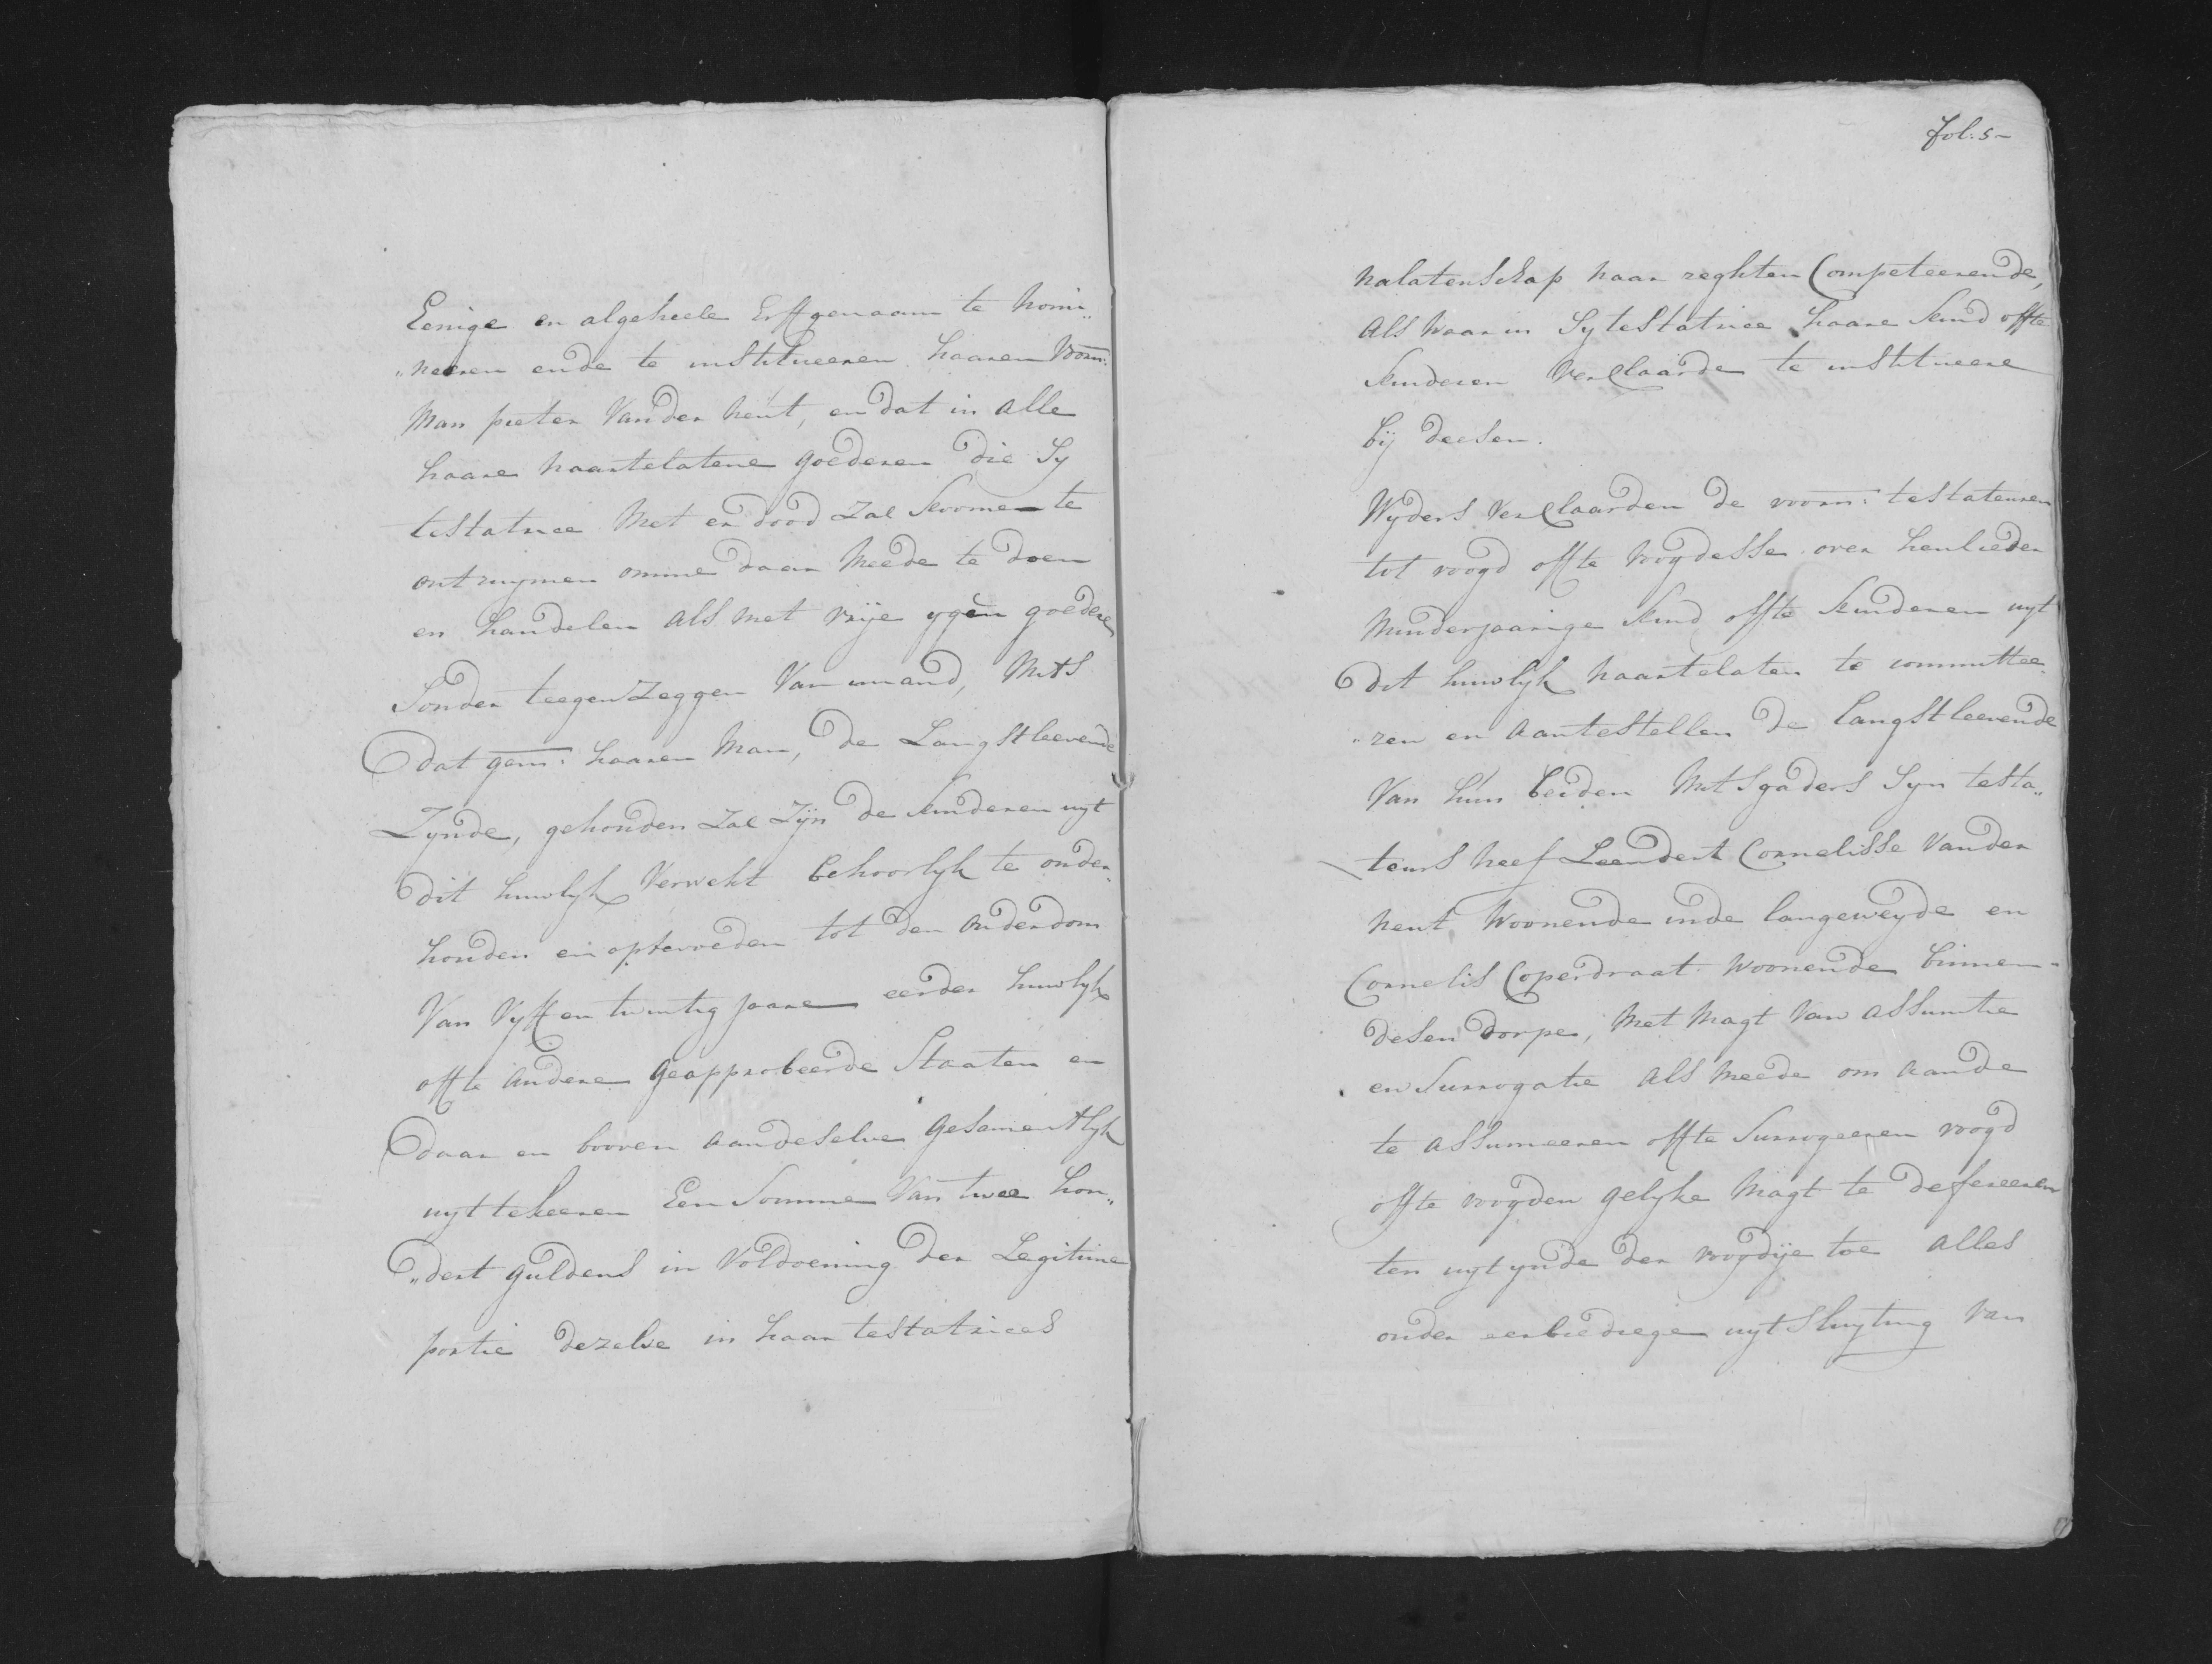 Eenige en algeheele Erffgenaam te Nomi„
„neeren ende te institueeren haaren Voorn:
Man pieter Vander Neut, en dat in alle
haare naartelatene goederen die Sy
testatrice Met er dood zal koomen te
ontruymen omme daar Meede te doen
en handelen als met vrije ygen goedere
Sonder teegenzeggen Van imand, Mits
dat gem: haaren Man, de Langstleevende
Zynde, gehouden zal zijn de kinderen uyt
dit huwlyk Verwekt behoorlyk te onder„
houden en optevoeden tot den ouderdom
Van Vyff en twintig jaare eerder huwlyk
offte andere geapprobeerde Staaten en
daar en booven aandeselve gesamentlyk
uyttekeeren Een Somme Van twee hon„
„dert guldens in Voldoening der Legitime
portie dezelve in haar testatrices
Fol: 5-
Nalatenschap naar reghten Competeerende,
als waar in Sy testatrice haare kind offte
kinderen Verclaarde te institueere
bij deesen.
Wyders Verclaarden de voorn: testateuren
tot voogd offte voogdesse over henlieder
Minderjaarige kind offte kinderen uyt
dit huwlyk naartelaten te committee„
„ren en aantestellen de langstleevende
Van hun beiden Mitsgaders Syn testa„
teurs Neef Leendert Cornelisse Vander
Neut Woonende inde langeweyde en
Cornelis Coperdraat Woonende binnen-
desen dorpe, Met Magt Van assumtie
en Surrogatie als Meede om aande
te assumeeren offte Surrogeeren voogd
offte voogden gelyke Magt te defereeren
ten uytynde der voogdije toe alles
onder eerbiedege uytsluyting Van